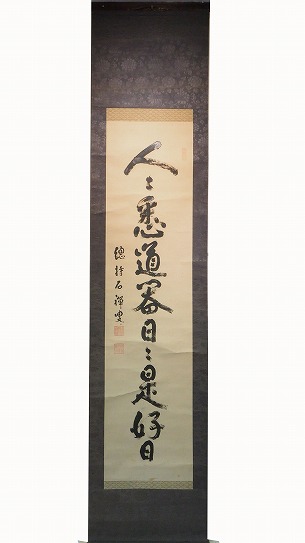 人々悉道器日々是好日
總持石禅叟